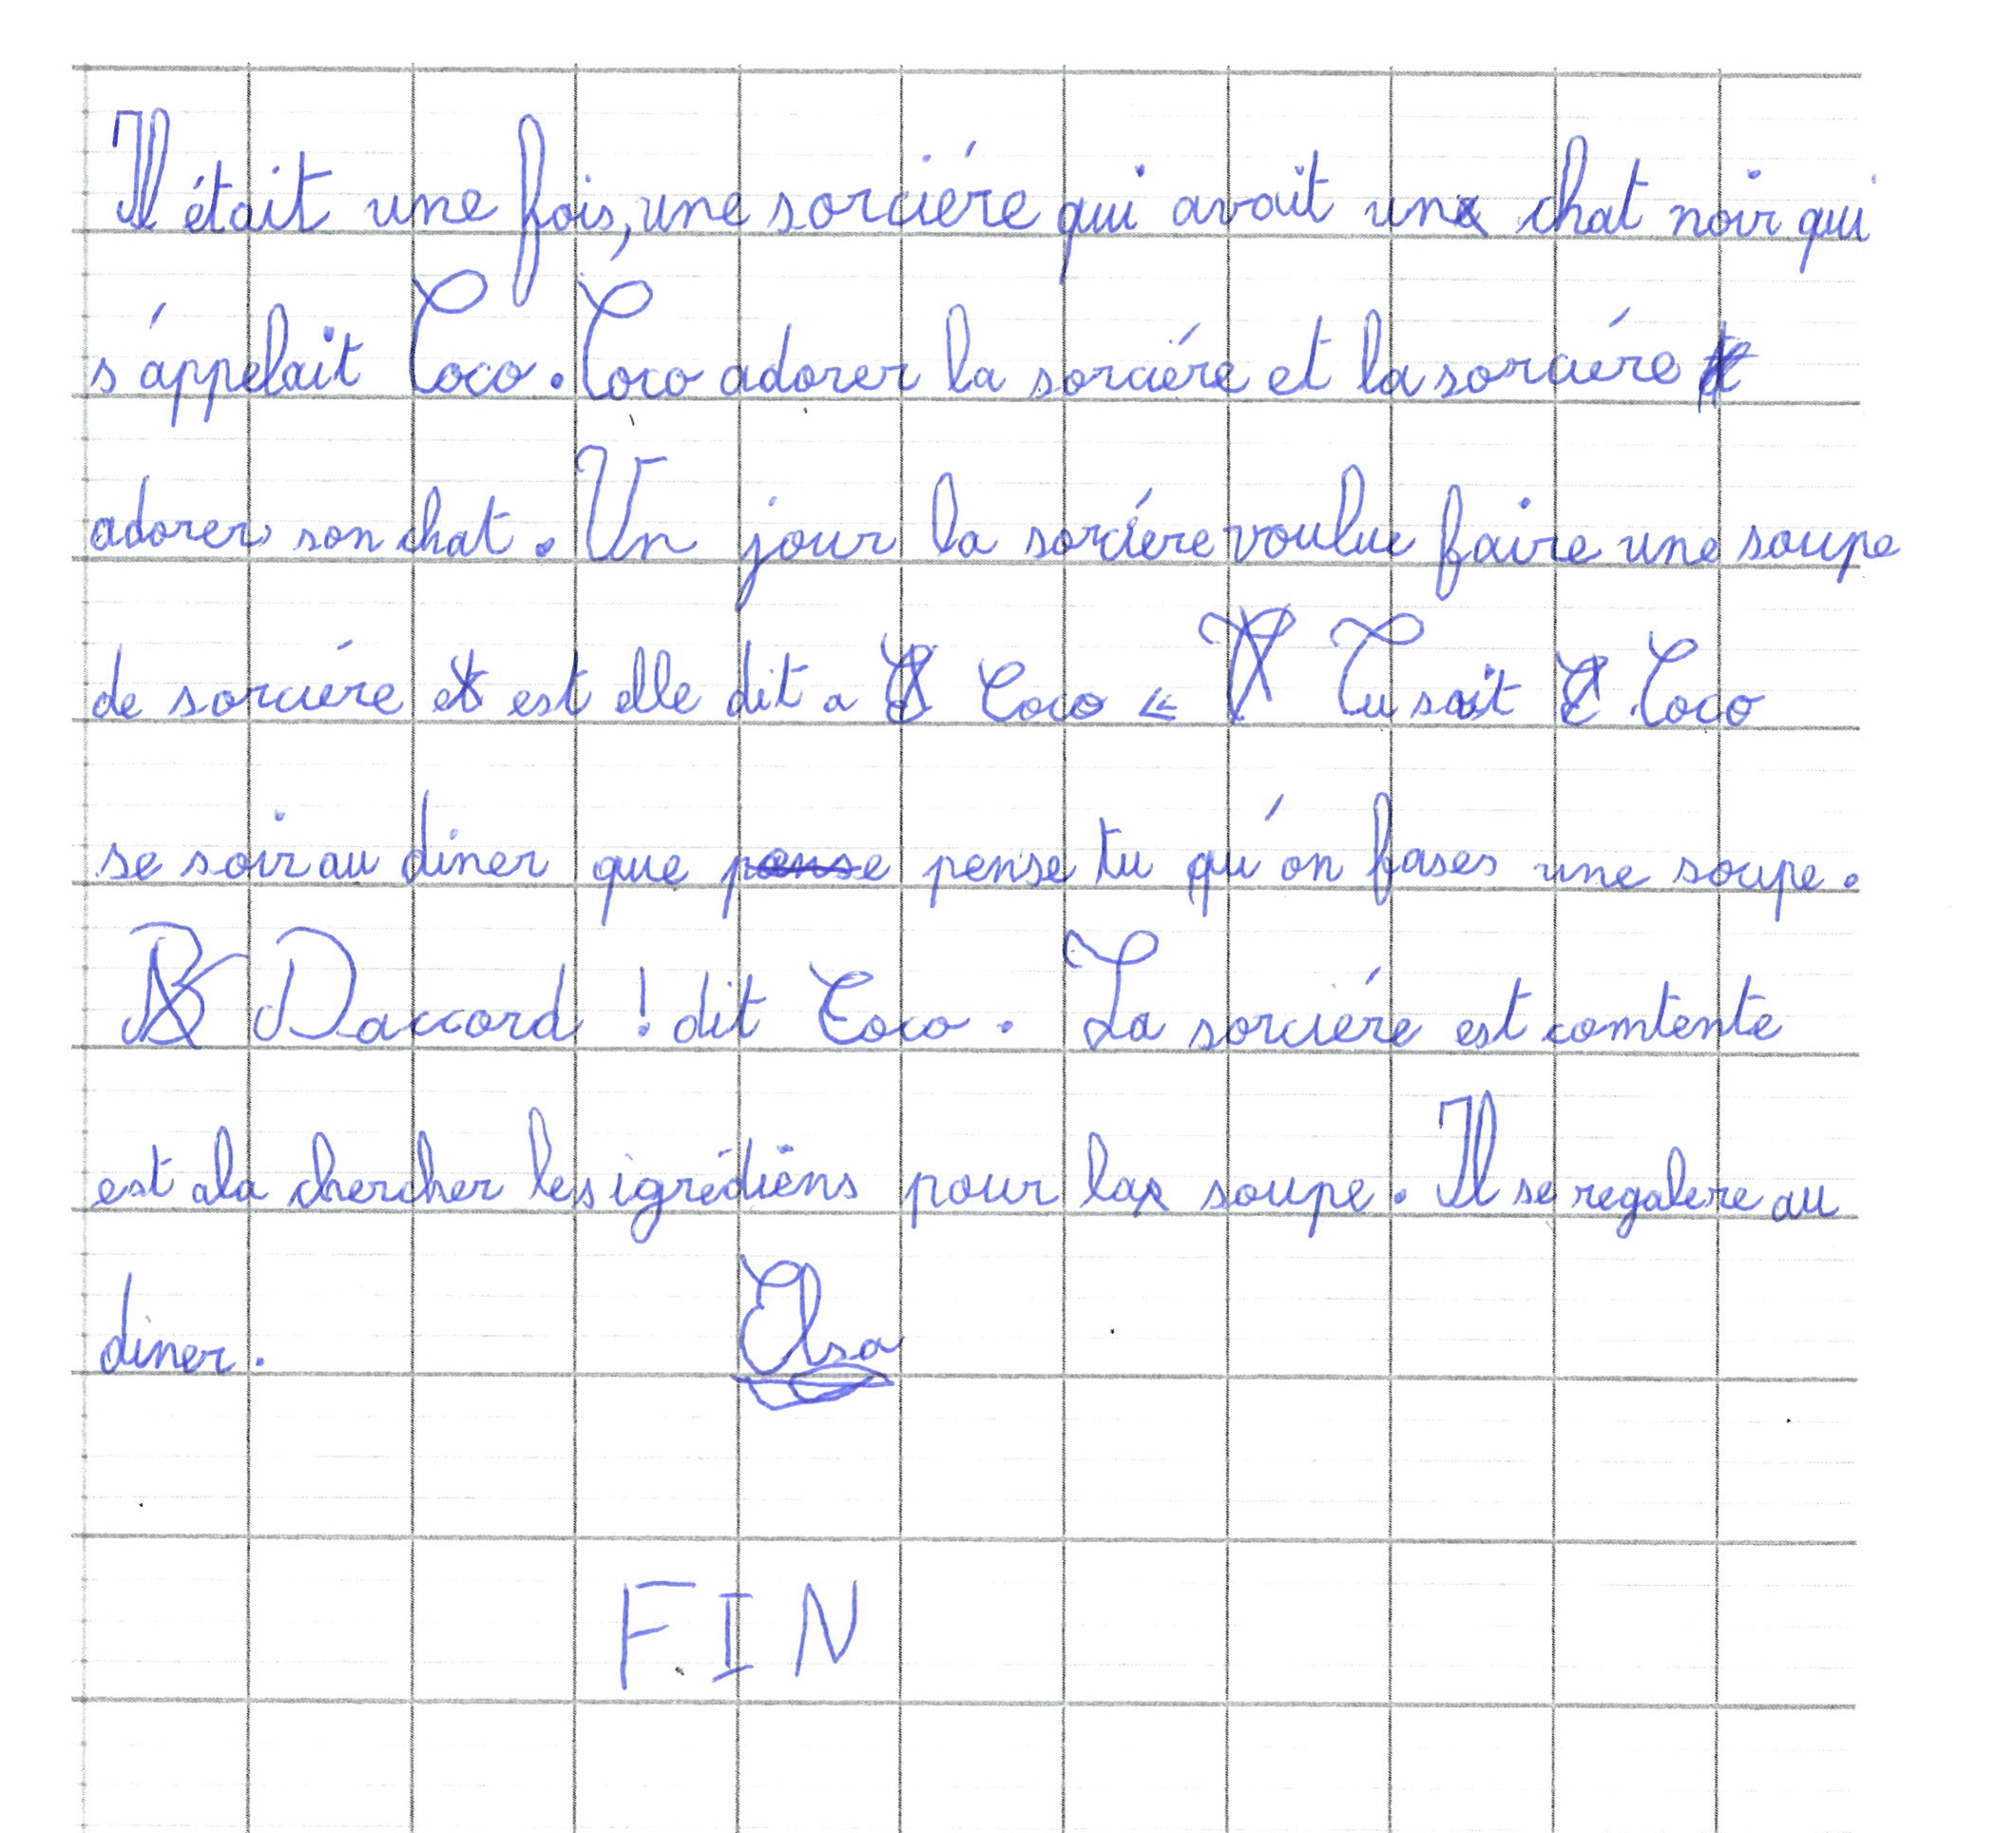 Il était une fois, une sorciére qui avait un chat noir qui
s'appelait Coco. Coco adorer la sorciére et la sorciére
adorer son chat. Un jour la sorciére voulue faire une soupe
de sorciére est elle dit a Coco « Tu sait Coco
se soir au diner que pense tu qu'on fases une soupe.
Daccord ! dit Coco. La sorciére est comtente
est ala chercher les igrédiens pour la soupe. Il se regalere au
diner. Elsa
FIN